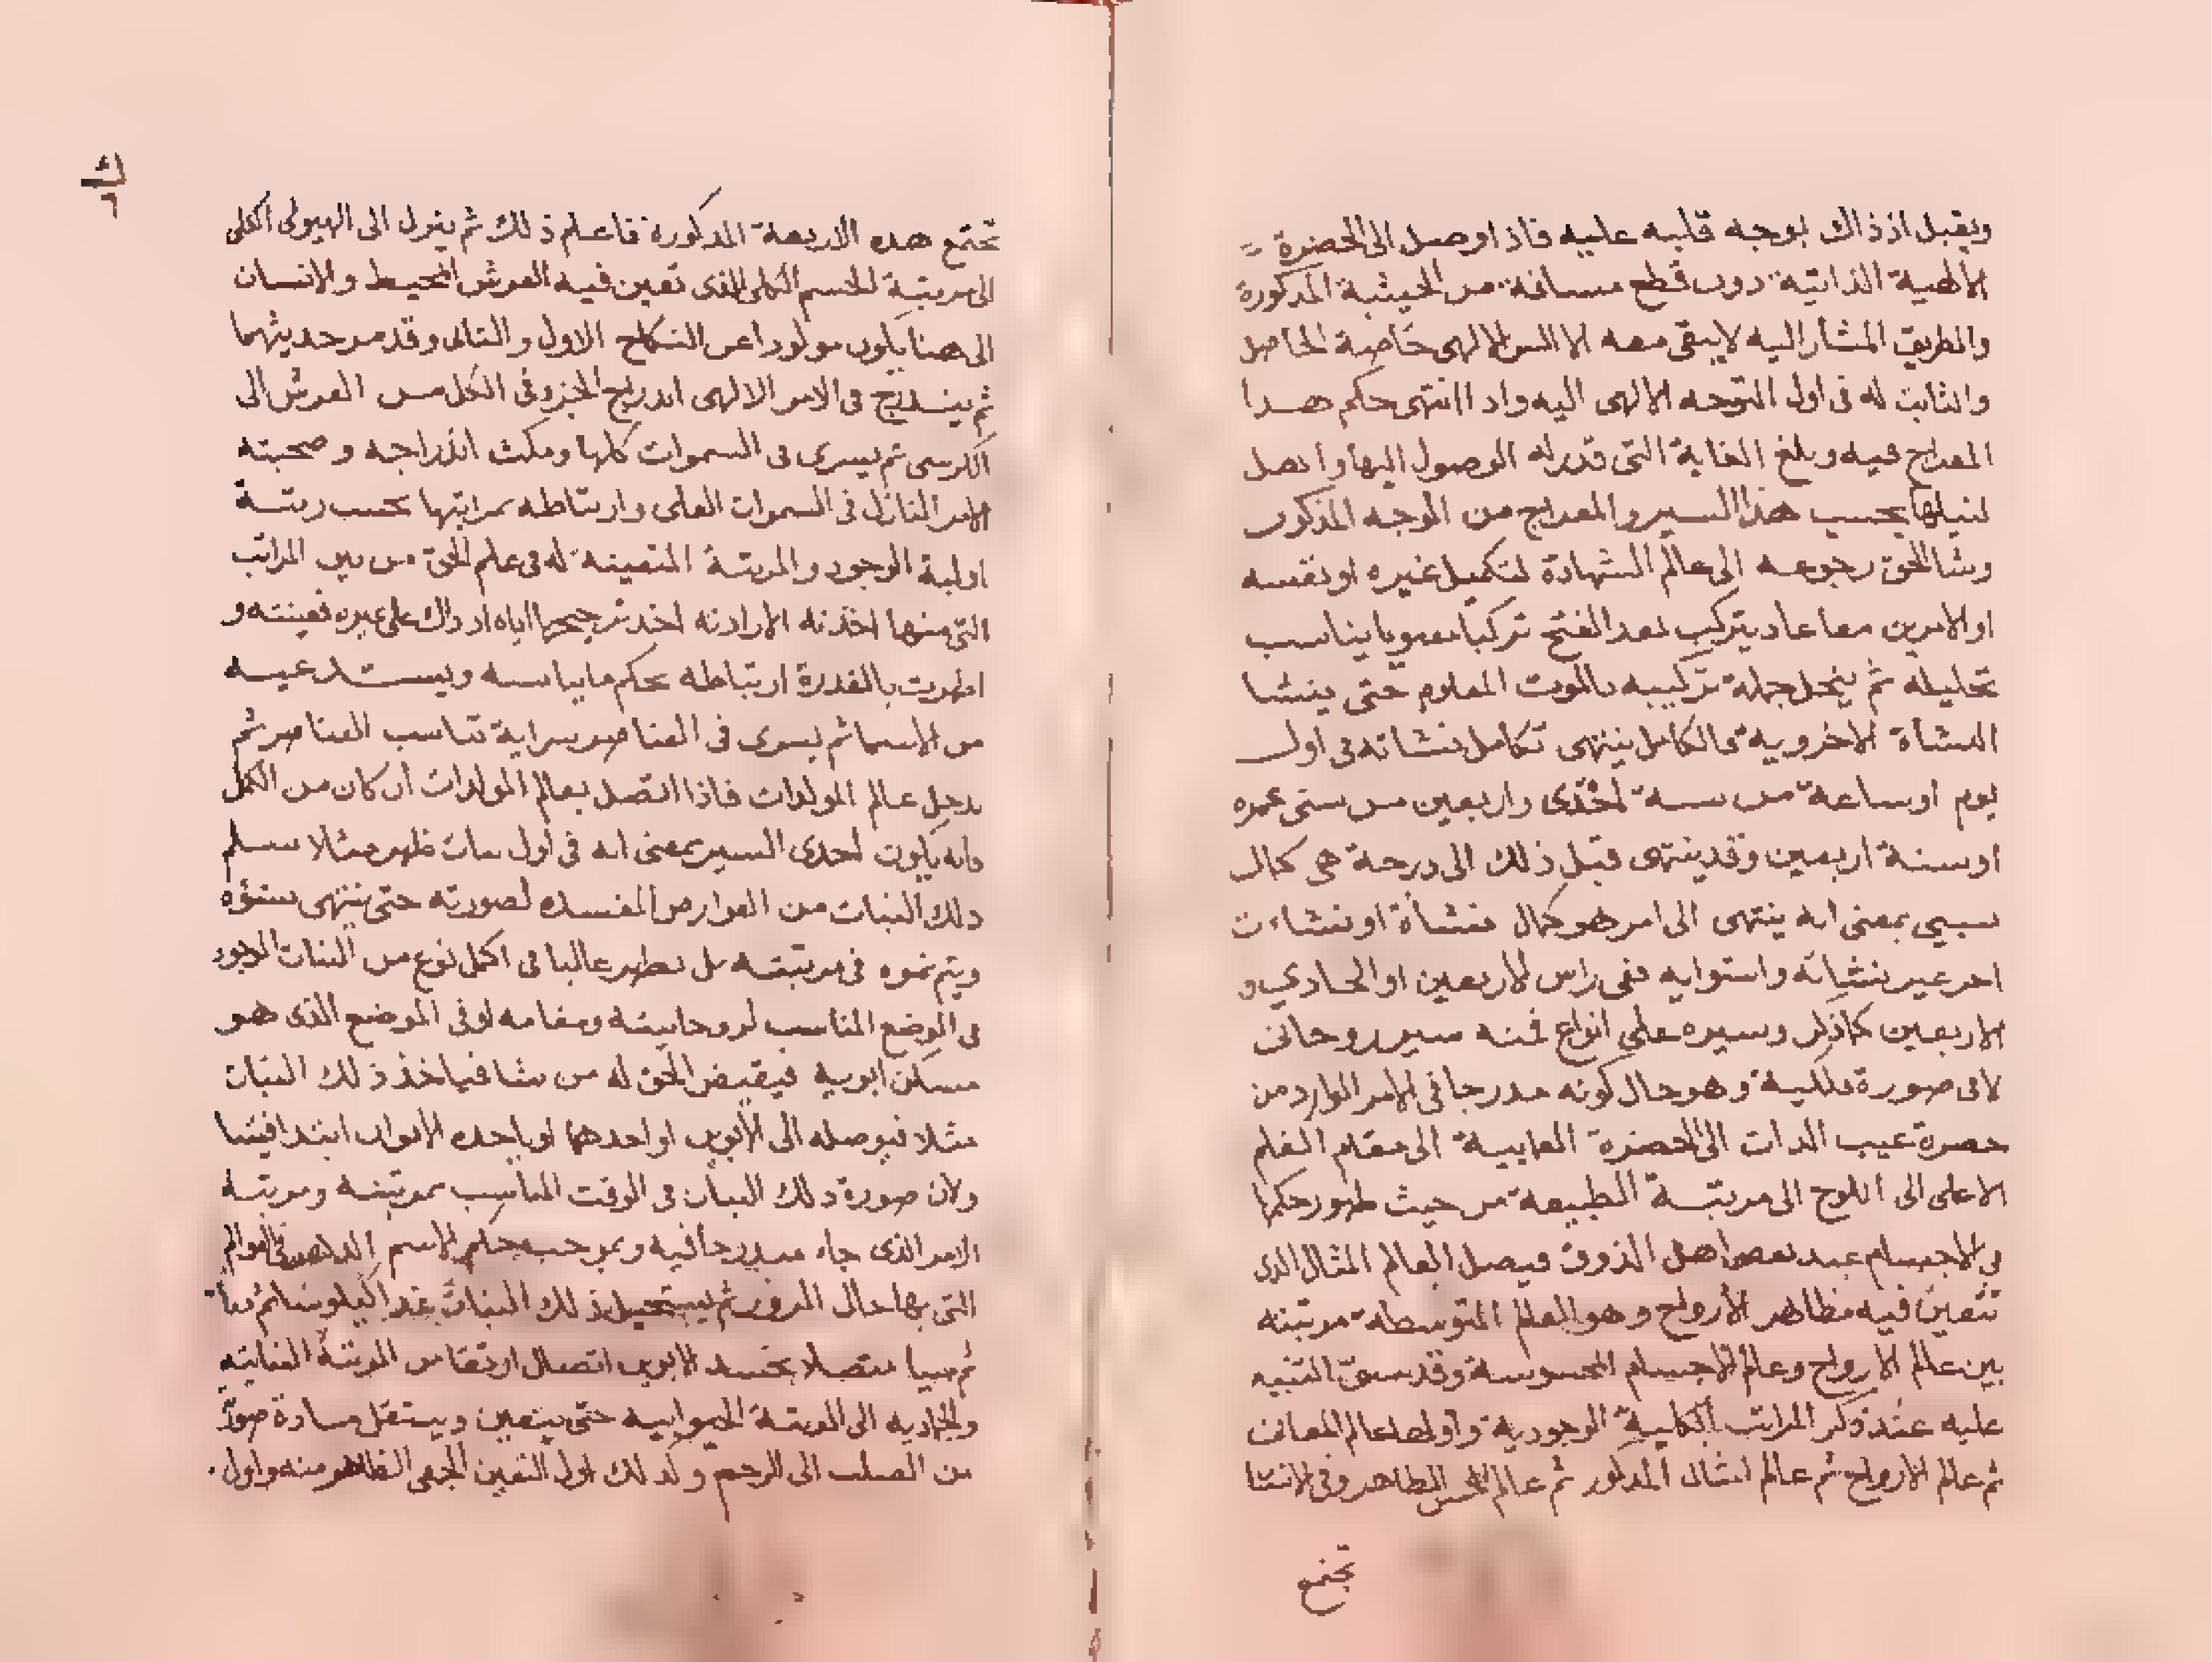 ويقبل اذ ذاك بوجه قلبه عليه فاذا وصل الى الحضرة
الالهية الذاتية دون قطع مسافة من الحيثية المذكورة
والطريق المشار اليه لا يبقى معه الا السر الالهى خاصة الحاصل
والثابت له فى اول التوجه الالهى اليه واذا انتهى حكم هذا
المعراج فيه وبلغ الغاية التى قدر له الوصول اليها واتصل
لنيلها بحسب هذا السير والمعراج من الوجه المذكور
وشا الحق رجوعه الى عالم الشهادة لتكميل غيره او نفسه
او الامرين معا عاد يتركب بعد الفتح تركيبا معنويا يناسب
تحليله ثم ينحل جملة تركيبه بالموت المعلوم حتى ينشا
النشأة الاخروية فالكامل ينتهى تكامل نشاته فى اول
يوم او ساعة من سنة احدى واربعين من سنى عمره
او سنة اربعين وقد ينتهى قبل ذلك الى درجة هى كمال
سببى بمعنى انه ينتهى الى امر هو كمال نشأة او نشاءت
اخر غير نشاته واستوايه ففى راس الاربعين او الحادي و
الاربعين كما ذكر وسيره على انواع فمنه سير روحانى
لا فى صورة فلكية وهو حال كونه مدرجا فى الامر الوارد من
حضرة غيب الذات الى الحضرة العمايية الى مقام القلم
الاعلى الى اللوح الى مرتبة الطبيعة من حيث ظهور حكمها
فى الاجسام عند بعض اهل الذوق فيصل العالم المثال الذى
تتعين فيه مظاهر الارواح وهو العالم المتوسطة مرتبته
بين عالم الارواح وعالم الاجسام المحسوسة وقد سبق التنبيه
عليه عند ذكر المراتب الكلية الوجودية واولها عالم المعانى
ثم عالم الارواح ثم عالم المثال المذكور ثم عالم الحس الظاهر وفى الانسا
تجتمع
تجتمع هذه الاربعة المذكورة فاعلم ذلك ثم ينزل الى الهيولى الكلى
الى مرتبة الجسم الكلى الذى تعين فيه العرش المحيط والانسان
الى هنا يكون مولودا عن النكاح الاول والثانى وقد مر حديثهما
ثم يندرج فى الامر الالهى اندراج الجزو فى الكل من العرش الى
الكرسى ثم يسرى فى السموات كلها ومكث اندراجه وصحبته
الامر النازل فى السموات العلى وارتباطه بمراتبها بحسب رتبة
اولية الوجود والمرتبة المتعينة له فى علم الحق من بين المراتب
التى منها اخذته الارادته اخذ ترجيحها اياه اذ ذاك على غيره فعينته و
اظهرت بالقدرة ارتباطه بحكم ما يناسبه ويستدعيه
من الاسما ثم يسرى فى العناصر سراية تناسب العناصر ثم
يدخل عالم المولدات فاذا اتصل بعالم المولدات ان كان من الكمل
فانه يكون احدى السير بمعنى انه فى اول نبات ظهر مثلا سلم
ذلك النبات من العوارض المفسده لصورته حتى ينتهى نشؤه
ويتم نموه فى مرتبته بل يظهر غالبا فى اكمل نوع من النبات الموجود
فى الموضع المناسب لروحانيته ومقامه او فى الموضع الذى هو
مسكن ابويه فيقيض الحق له من شا فياخذ ذلك النبات
مثلا فيوصله الى الابوين او احدهما او ياخذه الابوان ابتدا فيتنا
ولان صورة ذلك النبات فى الوقت المناسب بمرتبته ومرتبة
الامر الذى جاء مندرجا فيه وبموجب حكم الاسم الدهر
التى بها حال المرور ثم يستحيل ذلك النبات غذا كيلوسا ثم دما
ثم منيا متصلا بجسد الابوين اتصال ارتقا من المرتبة النباتيه
والجماديه الى المرتبة الحيوانيه حتى يتعين وينتقل مادة صورته
من الصلب الى الرحم وكذلك اول التعين الجمعى الظاهر منه واول